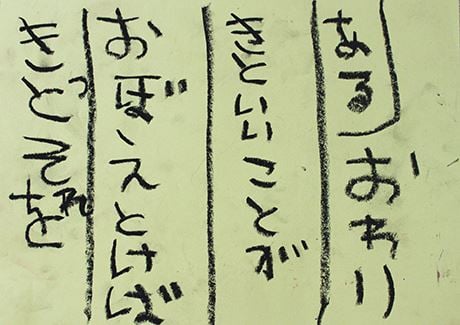 きっとそれを
おぼえとけば
きといいことが
ある
おわり